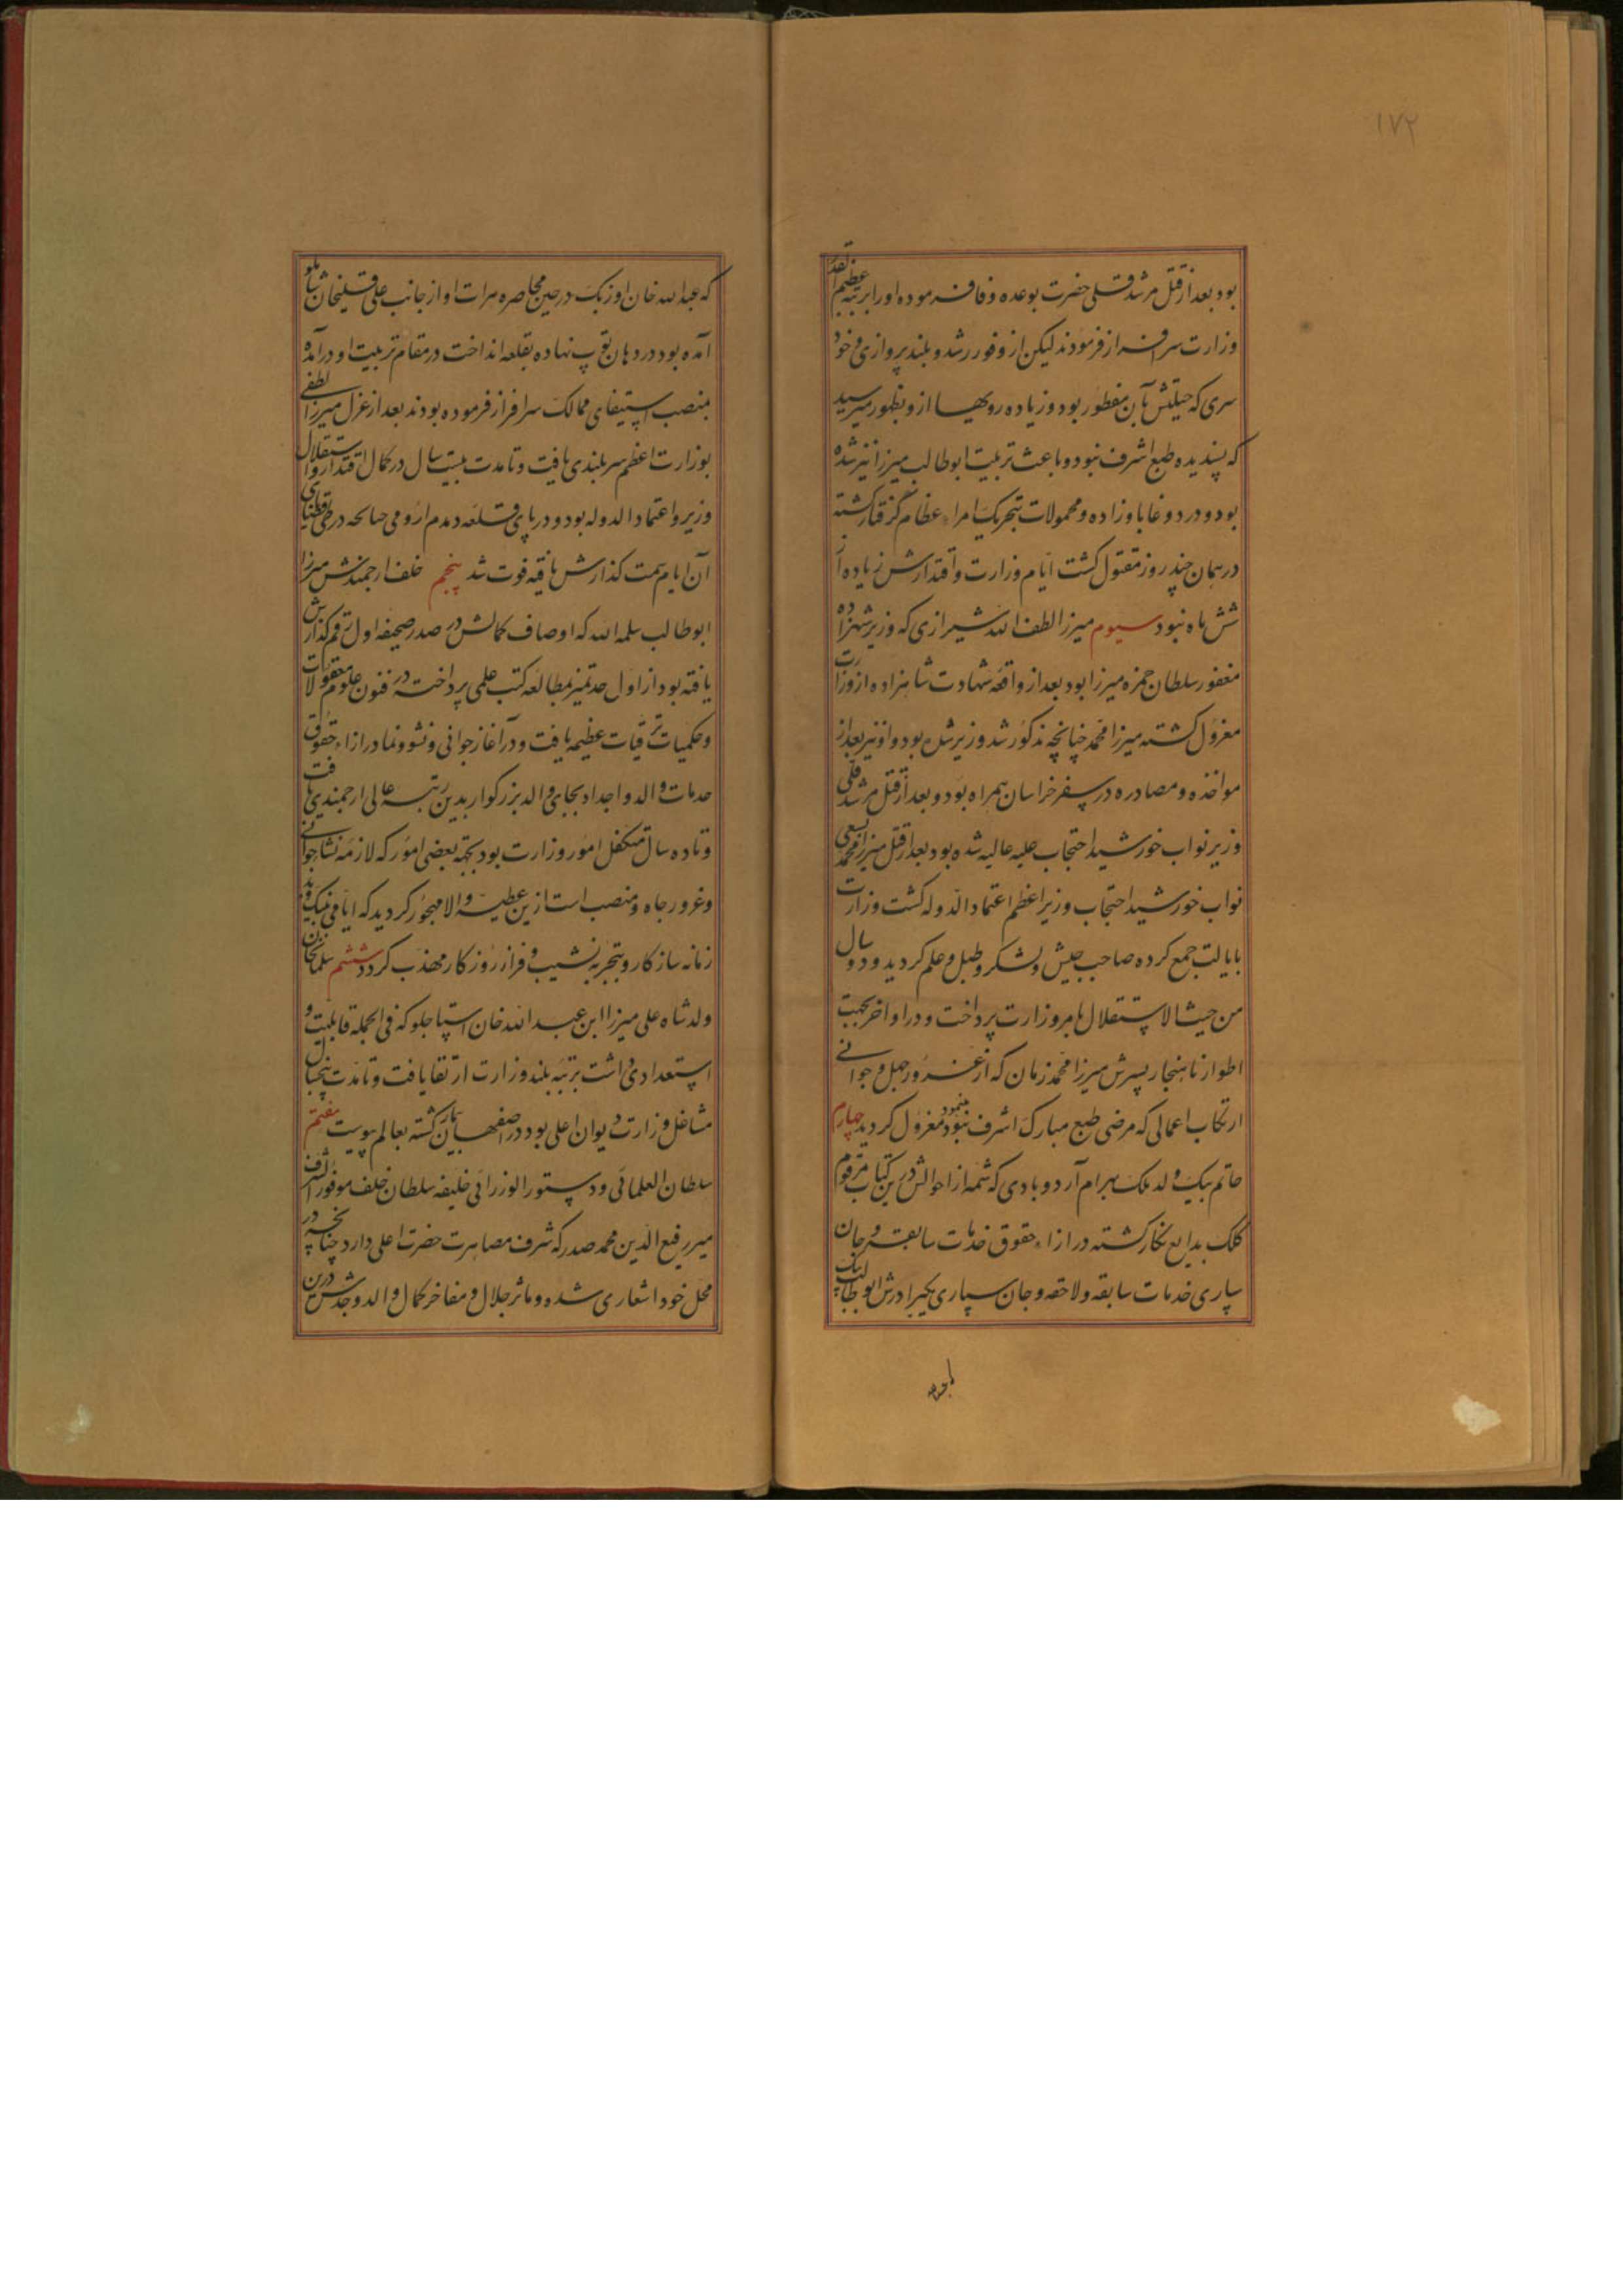 ۱۷۲
بود بعد از قتل مرشد قلی حضرت بوعده وفا فرموده او را برتبه عظیم القدر
وزارت سرافراز فرمودند لیکن از وفور رشد و بلند پروازی و خود
سری که جبلتش بآن مفطور بود و زیاده رویها از و بظهور میرسید
که پسندیده طبع اشرف نبود و باعث تربیت ابوطالب میرزا نیز شده
بود و در دوغاباد زاده و محولات بتحریک امراء عظام گرفتار گشته
در همان چند روز مقتول گشت ایام وزارت و اقتدارش زیاده از
شش ماه نبود سیوم میرزا لطف الله شیرازی که وزیر شهزاده
مغفور سلطان حمزه میرزا بود بعد از واقعه شهادت شاهزاده از وزارت
معزول گشته میرزا محمد چنانچه مذکور شد وزیر شده بود و او نیز بعد از
مواخذه و مصادره در سفر خراسان همراه بود و بعد از قتل مرشد قلی
وزیر نواب خورشید احتجاب علیه عالیه شده بود بعد از قتل میرزا محمد بسعی
نواب خورشید احتجاب وزیر اعظم اعتماد الدوله گشت وزارت
بایالت جمع کرده صاحب جیش و لشکر و طبل و علم گردید و دو سال
من حیث الاستقلال بامر وزارت پرداخت و در اواخر بجهت
اطوار ناهنجار پسرش میرزا محمد زمان که از غرور جهل و جوانی
ارتکاب اعمالی که مرضی طبع مبارک اشرف نبود مینمود معزول گردید چهارم
حاتم بیک ولد ملک بهرام آردوبادی که شمه از احوالش درین کتاب مرقوم
کلک بدایع نگار گشته در ازاء حقوق خدمات سابقه و جان
سپاری خدمات سابقه و لاحقه و جان سپاری یکبرادرش ابوطالب بیک
که عبدالله خان اوزبک در حین محاصره هرات او از جانب علی قلیخان شاملو
آمده بود در دهان توپ نهاده بقلعه انداخت در مقام تربیت او درآمده
بمنصب استیفای ممالک سرافراز فرموده بودند بعد از عزل میرزا لطفی
بوزارت اعظم سربلندی یافت و تا مدت بیست سال در کمال اقتدار و استقلال
وزیر و اعتماد الدوله بود و در پای قلعه دمدم ارومی چنانچه در طی قضایای
آن ایام سمت گذارش یافته فوت شد پنجم خلف ارجمندش میرزا
ابوطالب سلمه الله که اوصاف کمالش در صدر صحیفه اول رقم گذارش
یافته بود از اول حد تمیز بمطالعه کتب علمی پرداخته در فنون علوم معقولات
و حکمیات ترقیات عظیمه یافت و در آغاز جوانی و نشو و نما در ازاء حقوق
خدمات والد و اجداد بجای والد بزرگوار بدین رتبه عالی ارجمندی یافت
و تا ده سال متکفل امور وزارت بود بجهة بعضی امور که لازمه نشاء جوانی
و غرور جاه و منصب است ازین عطیه والا مهجور گردید که ایامی نیک و بد
زمانه سازگار و بتجربه نشیب و فراز روزگار مهذب گردد ششم سلمانخان
ولد شاه علی میرزا ابن عبدالله خان استاجلو که فی الجمله قابلیت و
استعدادی داشت برتبه بلند وزارت ارتقا یافت و تا مدت پنجسال
مشاغل وزارت دیوان اعلی بود در اصفهان بیمار گشته بعالم پیوست هفتم
سلطان العلمائی و دستور الوزرائی خلیفه سلطان خلف موفور الشرف
میر رفیع الدین محمد صدر که شرف مصاهرت حضرت اعلی دارد چنانچه در
محل خود اشعاری شده و ماثر جلال و مفاخر کمال والد و جدش درین